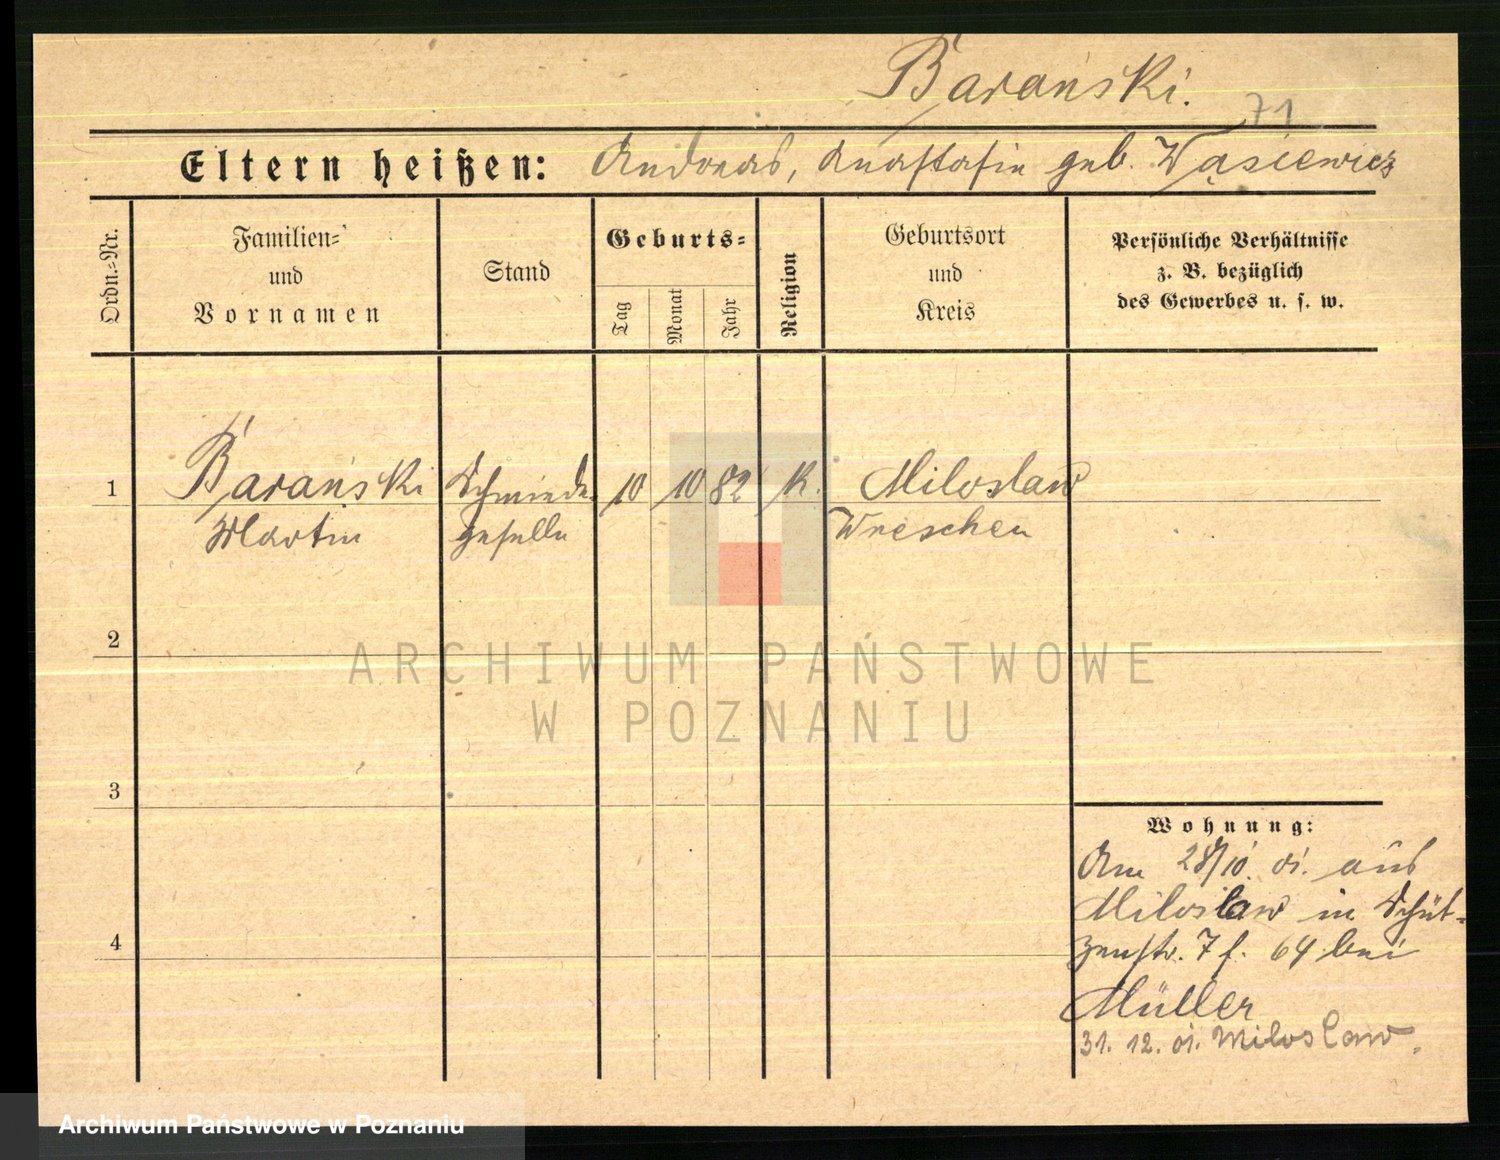 Barański.
71
Eltern heißen: Andreas, Anastasia geb. Wąsiewicz
Ordn.-Nr.
Familien- und Vornamen
Stand
Geburts-
Tag
Monat
Jahr
Religion
Geburtsort und Kreis
Persönliche Verhältnisse
z. B. bezüglich
des Gewerbes u. s. w.
1 Barański Schmiede- 10 10 82 K. Miloslaw
Martin geselle Wreschen
2
ARCHIWUM PAŃSTWOWE
W POZNANIU
3
Wohnung:
Am 28/10. 01. aus
Miloslaw in Schüt-
zenstr. 7 f. 64 bei
4
Müller
31. 12. 01. Miloslaw.
Archiwum Państwowe w Poznaniu